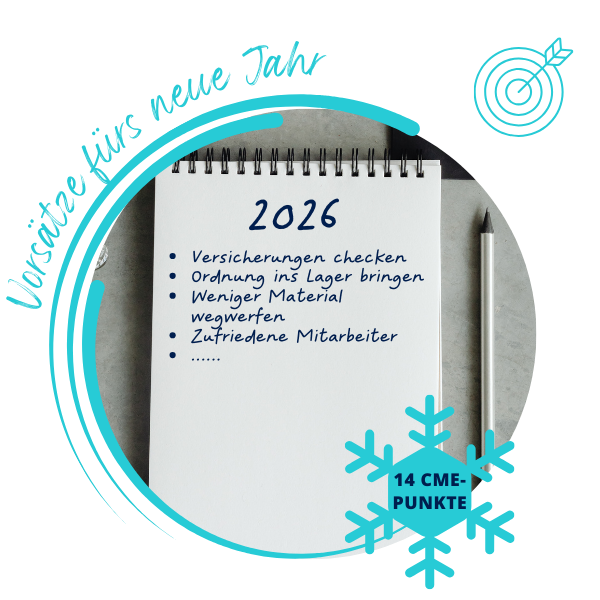 Vorsätze fürs neue Jahr
2026
Versicherungen checken
Ordnung ins Lager bringen
Weniger Material
wegwerfen
Zufriedene Mitarbeiter
......
14 CME-
PUNKTE